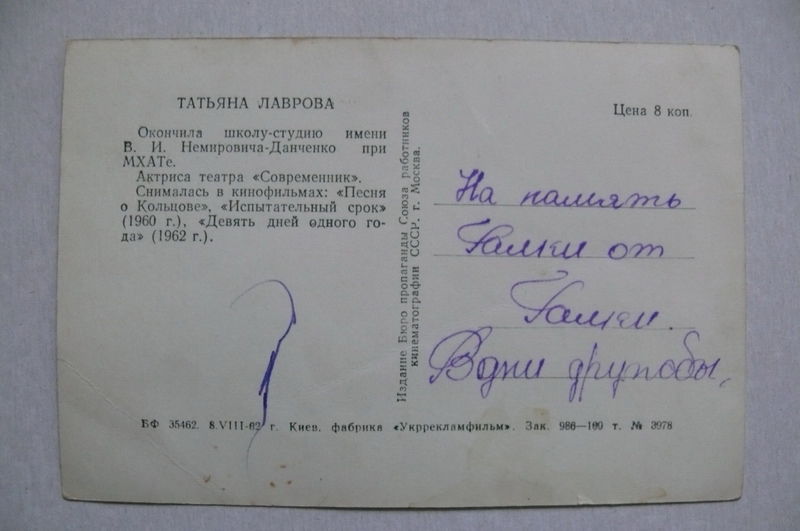 ТАТЬЯНА ЛАВРОВА
Окончила школу-студию имени
В. И. Немировича-Данченко при
МХАТе.
Актриса театра «Современник».
Снималась в кинофильмах: «Песня
о Кольцове», «Испытательный срок»
(1960 г.), «Девять дней одного го-
да» (1962 г.).
Издание Бюро пропаганды Союза работников
кинематографии СССР. г. Москва.
Цена 8 коп.
На память
Галки от
Галки.
В дни дружбы,
БФ 35462. 8.VIII-62 г. Киев. фабрика «Укррекламфильм». Зак. 986—100 т. № 3978